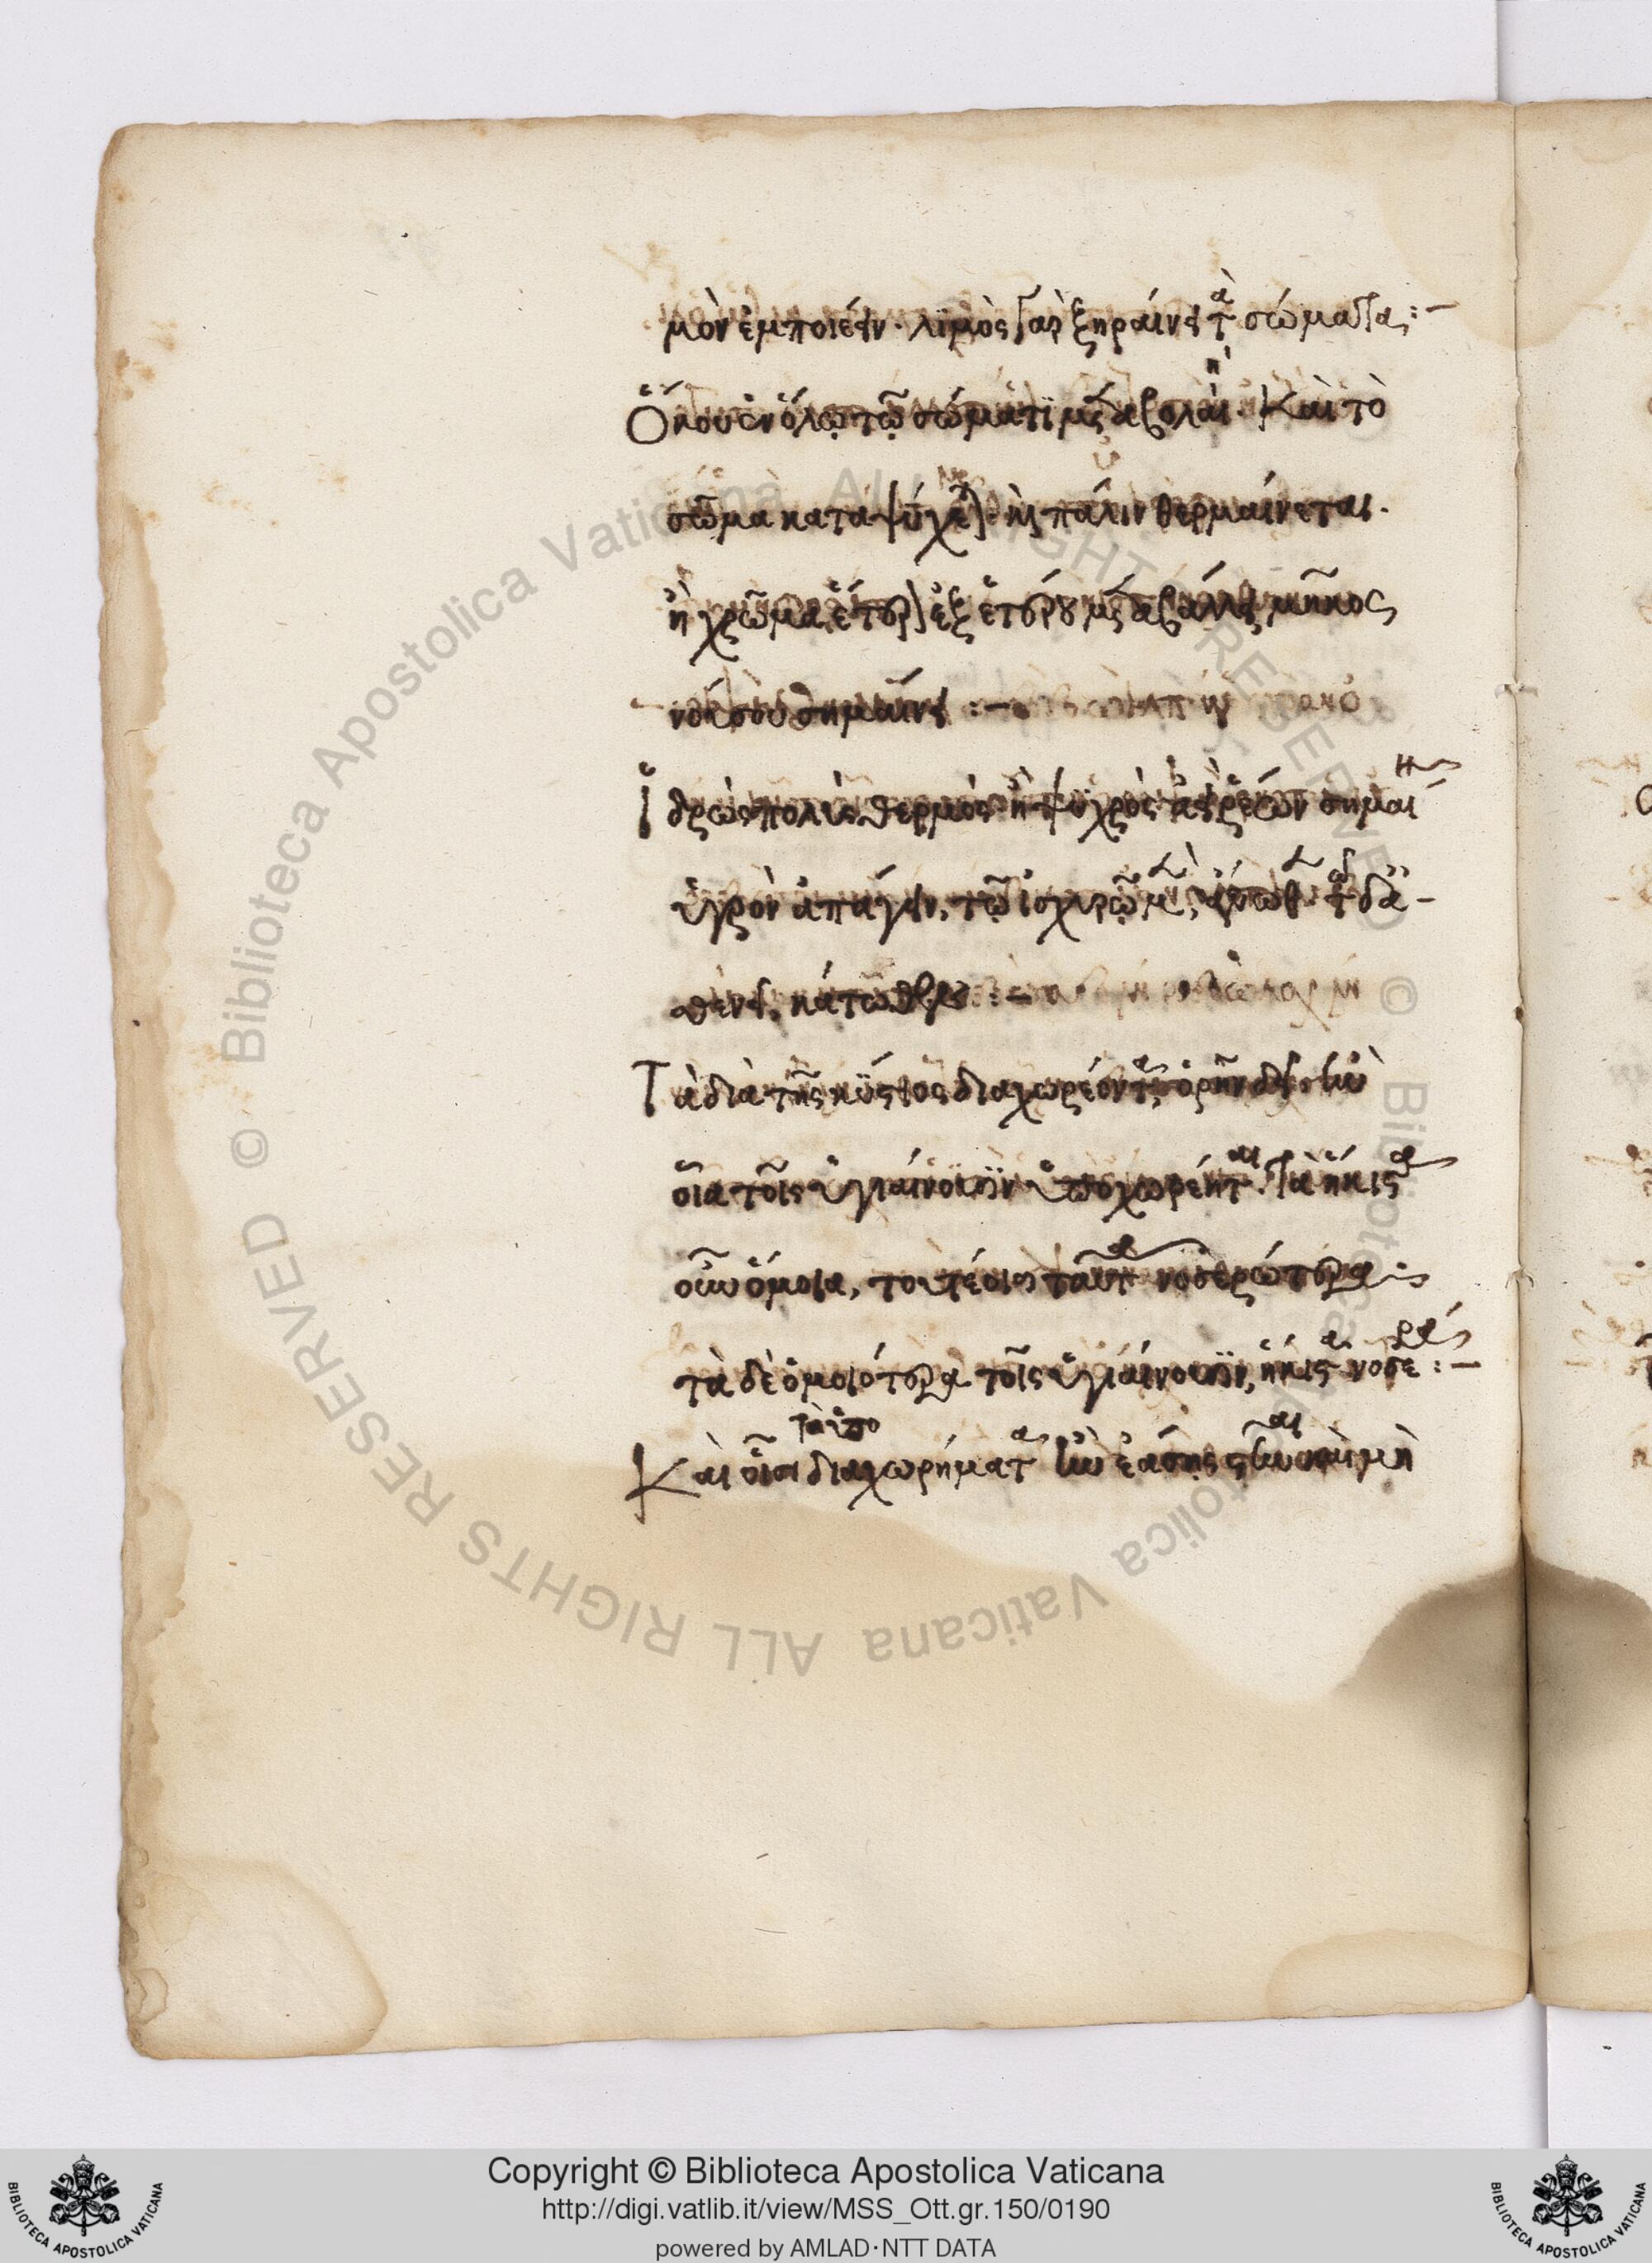 μὸν ἐμποιέειν· λιμὸς γὰρ ξηραίνει τὰ σώματα:–
Ὅκου ἐν ὅλῳ τῷ σώματι μεταβολαὶ· καὶ τὸ
σῶμα καταψύχεται· καὶ πάλιν θερμαίνεται·
ἢ χρῶμα ἕτερον ἐξ ἑτέρου μεταβάλλει, μῆκος
νούσου σημαίνει:–
Ἱδρὼς πολὺς θερμὸς ἢ ψυχρὸς ἀεὶ ῥέων σημαί
ὑγρὸν ἀπάγειν, τῷ ἰσχυρῷ μὲν, ἄνωθεν τῷ δὲ ἀ-
σθενεῖ, κάτωθεν:–
Τὰ διὰ τῆς κύστιος διαχωρέοντα, ὁρῆν δεῖ· ἢν
οἷα τοῖς ὑγιαίνουσιν ὑποχωρέηται· τὰ ἥκιστα
οὖν ὅμοια, τουτέοισι ταῦτα νοσερώτερα
τὰ δὲ ὁμοιότερα τοῖς ὑγιαίνουσιν, ἥκιστα νοσερά:–
Καὶ οἷσι τὰ ὑπο
διαχωρήματα ἢν ἐάσῃς στῆναι καὶ μὴ
Copyright © Biblioteca Apostolica Vaticana
http://digi.vatlib.it/view/MSS_Ott.gr.150/0190
powered by AMLAD·NTT DATA
BIBLIOTECA APOSTOLICA VATICANA
BIBLIOTECA APOSTOLICA VATICANA
© Biblioteca Apostolica Vaticana ALL RIGHTS RESERVED © Biblioteca Apostolica Vaticana ALL RIGHTS RESERVED